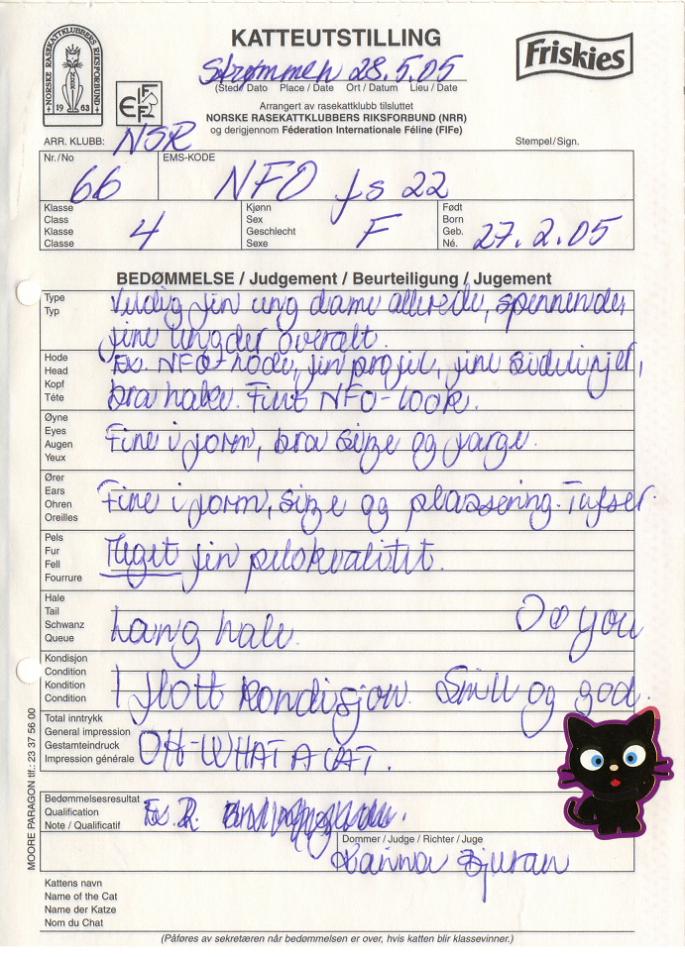 NORSKE RASEKATTKLUBBERS RIKSFORBUND
NRR
1963
FIFe
KATTEUTSTILLING
Friskies
Strømmen 28.5.05
(Sted / Dato Place / Date Ort / Datum Lieu / Date)
Arrangert av rasekattklubb tilsluttet
NORSKE RASEKATTKLUBBERS RIKSFORBUND (NRR)
og derigjennom Féderation Internationale Féline (FIFe)
ARR. KLUBB: NSR
Stempel/Sign.
Nr./No 66
EMS-KODE NFO fs 22
Klasse
Class
Klasse
Classe
4
Kjønn
Sex
Geschlecht
Sexe
F
Født
Born
Geb.
Né.
27.2.05
BEDØMMELSE / Judgement / Beurteiligung / Jugement
Type
Typ
Veldig fin ung dame allerede, spennende,
fine lengder overalt.
Hode
Head
Kopf
Téte
Ex. NFO-hode, fin profil, fine sidelinjer,
bra hake. Fint NFO-look.
Øyne
Eyes
Augen
Yeux
Fine i form, bra size og farge.
Ører
Ears
Ohren
Oreilles
Fine i form, size og plassering. Tufser.
Pels
Fur
Fell
Fourrure
Meget fin pelskvalitet.
Hale
Tail
Schwanz
Queue
Lang hale.
Do you
Kondisjon
Condition
Kondition
Condition
I flott kondisjon. Snill og god.
Total inntrykk
General impression
Gestamteindruck
Impression générale
OH-WHAT A CAT.
Bedømmelsesresultat
Qualification
Note / Qualificatif
Ex. 2.
Dommer / Judge / Richter / Juge
MOORE PARAGON tlf.: 23 37 56 00
Kattens navn
Name of the Cat
Name der Katze
Nom du Chat
(Påføres av sekretæren når bedømmelsen er over, hvis katten blir klassevinner.)